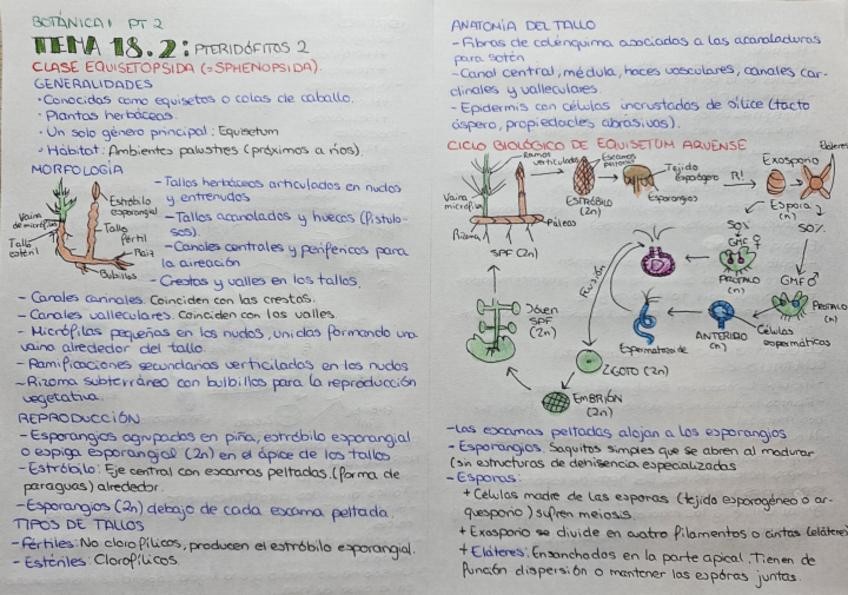 BOTÁNICA I PT 2
TEMA 18.2: PTERIDÓFITOS 2
CLASE EQUISETOPSIDA (=SPHENOPSIDA).
GENERALIDADES
· Conocidas como equisetos o colas de caballo.
· Plantas herbáceas.
· Un solo género principal: Equisetum
· Hábitat: Ambientes palustres (próximos a ríos).
MORFOLOGÍA
Vaina
de micrófilas
Tallo
estéril
Estróbilo
esporangial
Tallo
fértil
Raíz
Bulbillos
- Tallos herbáceos articulados en nudos
y entrenudos
- Tallos acanalados y huecos (fistulo-
sos).
- Canales centrales y periféricos para
la aireación
- Crestas y valles en los tallos.
- Canales carinales. Coinciden con las crestas.
- Canales valleculares. Coinciden con los valles.
- Micrófilas pequeñas en los nudos, unidas formando una
vaina alrededor del tallo.
- Ramificaciones secundarias verticiladas en los nudos
- Rizoma subterráneo con bulbillos para la reproducción
vegetativa.
REPRODUCCIÓN
- Esporangios agrupados en piña, estróbilo esporangial
o espiga esporangial (2n) en el ápice de los tallos
- Estróbilo: Eje central con escamas peltadas (forma de
paraguas) alrededor.
- Esporangios (2n) debajo de cada escama peltada.
TIPOS DE TALLOS
- Fértiles: No clorofílicos, producen el estróbilo esporangial.
- Estériles: Clorofílicos
ANATOMÍA DEL TALLO
- Fibras de colénquima asociados a las acanaladuras
para sostén
- Canal central, médula, haces vasculares, canales car-
dinales y valleculares.
- Epidermis con células incrustadas de sílice (tacto
áspero, propiedades abrasivas).
CICLO BIOLÓGICO DE EQUISETUM ARVENSE
Ramos
verticulados
Vaina
micrófilas
Rizoma
SPF (2n)
Escamas
peltadas
ESTRÓBILO
(2n)
Tejido
esporógeno
Esporangios
R!
Exosporio
Eláteres
Espora
(n)
50%
50%
GMF ♀
PROTALO
(n)
GMF ♂
PROTALO
(n)
Células
espermáticas
ANTERIDIO
(n)
Espermatozoide
Fusión
ZIGOTO (2n)
EMBRIÓN
(2n)
Jóven
SPF
(2n)
- Las escamas peltadas alojan a los esporangios
- Esporangios. Saquitos simples que se abren al madurar
(sin estructuras de dehisencia especializadas
- Esporas:
+ Células madre de las esporas (tejido esporogéneo o ar-
quesporio) sufren meiosis.
+ Exosporio se divide en cuatro filamentos o cintas (eláteres)
+ Eláteres: Ensanchados en la parte apical. Tienen de
función dispersión o mantener las espóras juntas.